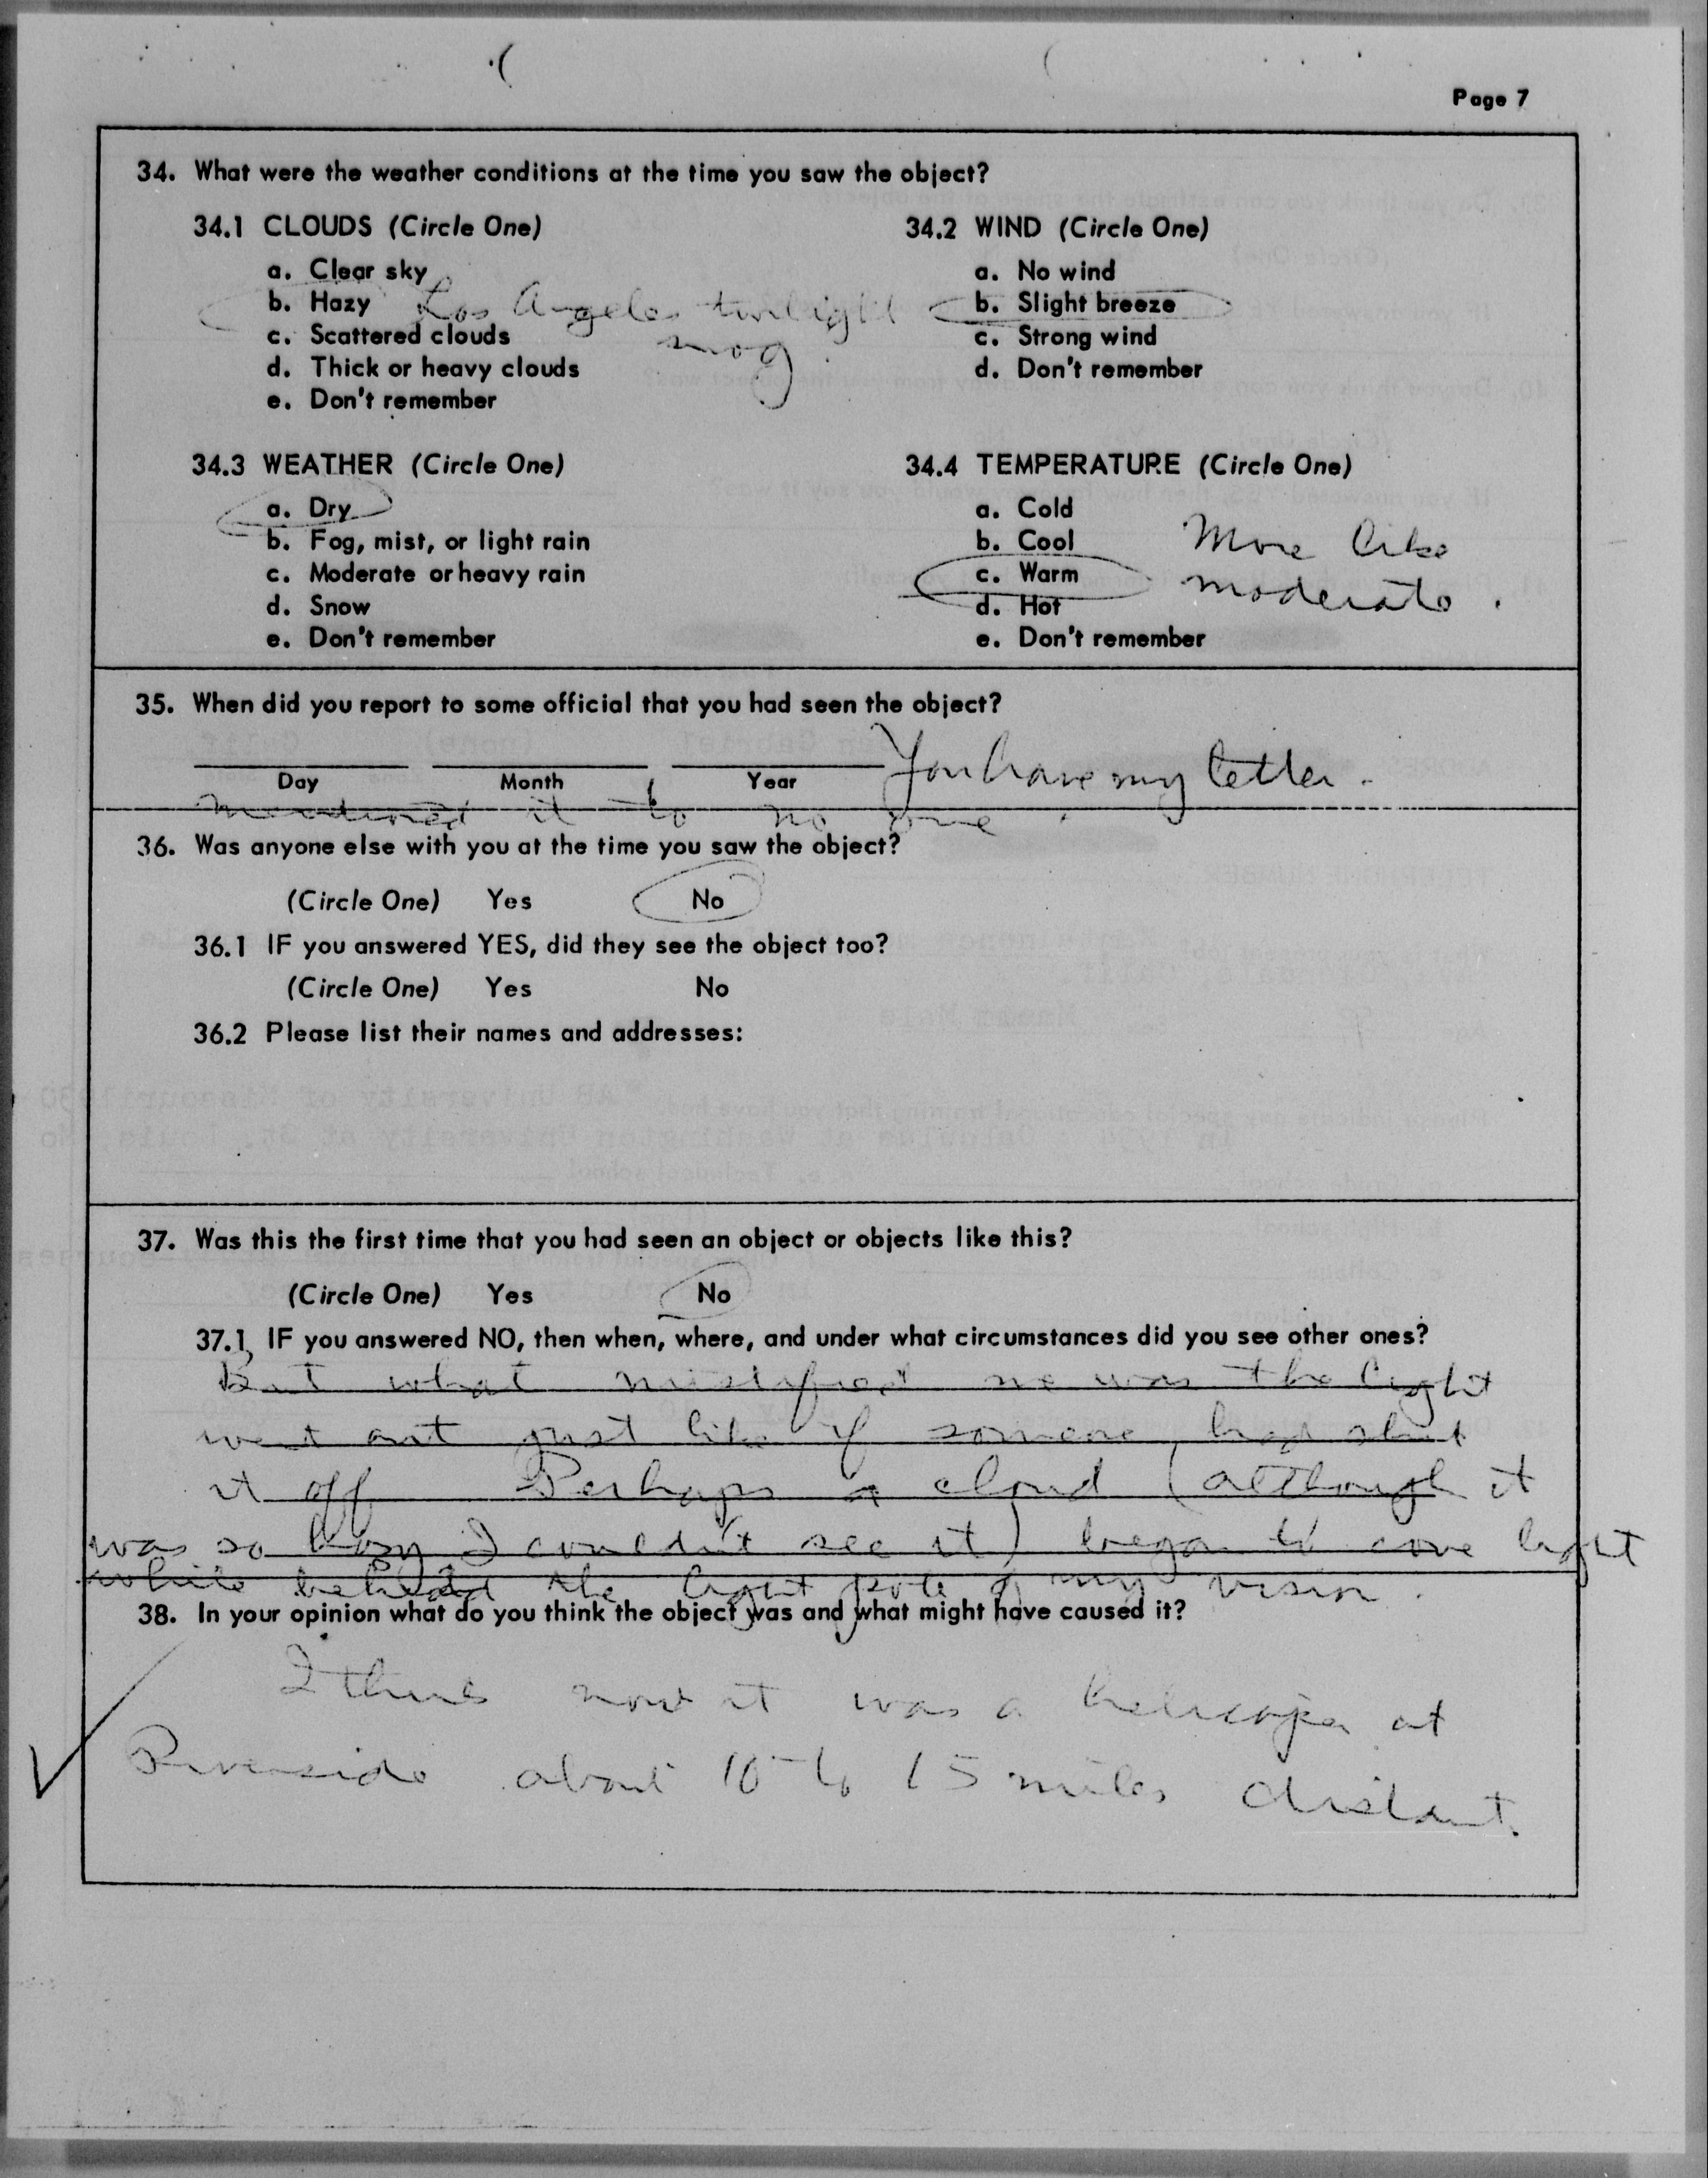 Page 7
34. What were the weather conditions at the time you saw the object?
34.1 CLOUDS (Circle One)
a. Clear sky
b. Hazy Los Angeles twilight
smog.
c. Scattered clouds
d. Thick or heavy clouds
e. Don't remember
34.2 WIND (Circle One)
a. No wind
b. Slight breeze
c. Strong wind
d. Don't remember
34.3 WEATHER (Circle One)
a. Dry
b. Fog, mist, or light rain
c. Moderate or heavy rain
d. Snow
e. Don't remember
34.4 TEMPERATURE (Circle One)
a. Cold
b. Cool
c. Warm
d. Hot
e. Don't remember
More like
moderate.
35. When did you report to some official that you had seen the object?
You have my letter.
Day Month Year
mentioned it to no one.
36. Was anyone else with you at the time you saw the object?
(Circle One) Yes No
36.1 IF you answered YES, did they see the object too?
(Circle One) Yes No
36.2 Please list their names and addresses:
37. Was this the first time that you had seen an object or objects like this?
(Circle One) Yes No
37.1 IF you answered NO, then when, where, and under what circumstances did you see other ones?
But what mistified me was the light
went out just like if someone had shut
it off Perhaps a cloud (although it
was so hazy I couldn't see it) began to cove light
while behind the light pole of my vision.
38. In your opinion what do you think the object was and what might have caused it?
I think now it was a helicoper at
Riverside about 10 to 15 miles distant.